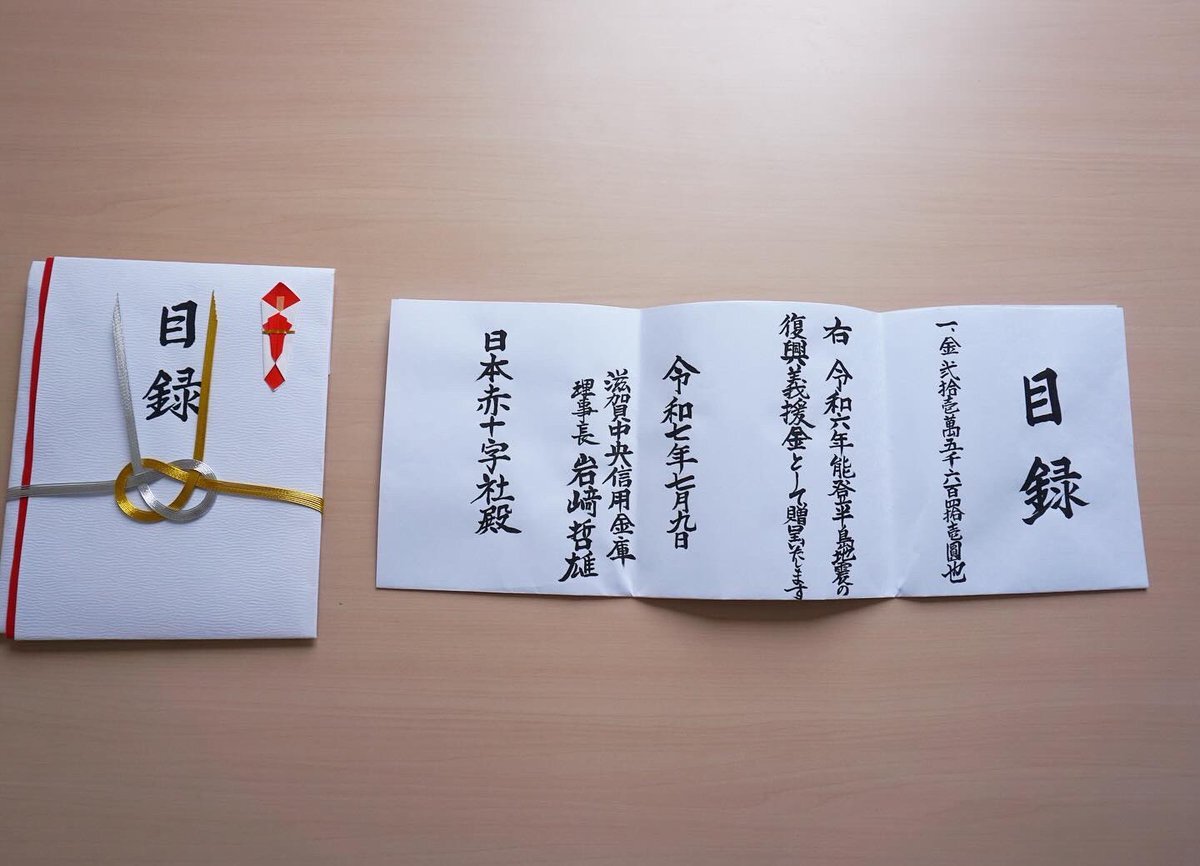 目録
目録
一、金 弐拾壱萬五千六百四拾壱圓也
右 令和六年能登半島地震の
復興義援金として贈呈いたします
令和七年七月九日
滋賀中央信用金庫
理事長 岩﨑哲雄
日本赤十字社殿